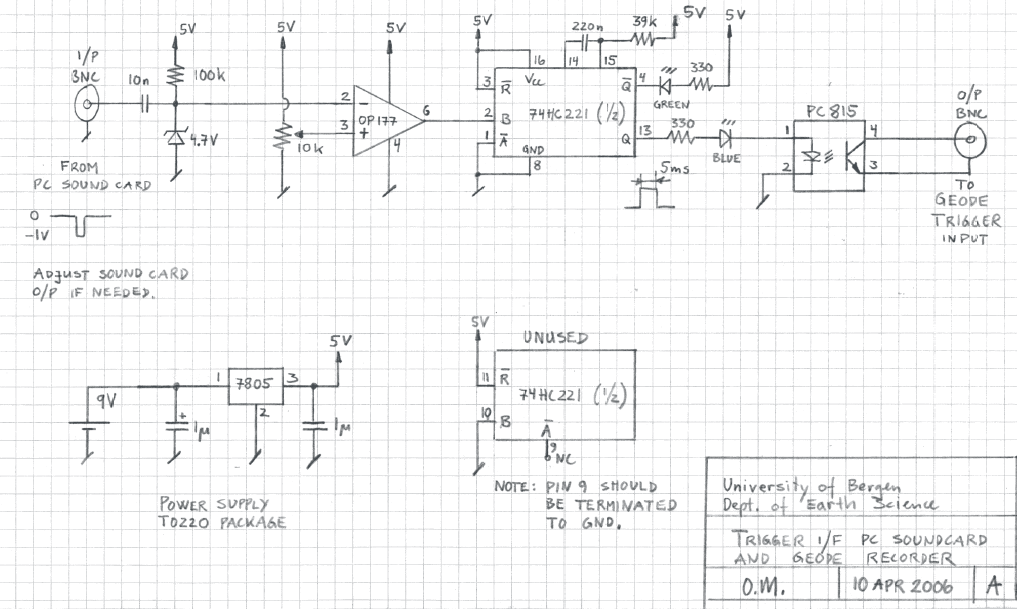 I/P
BNC
10n
5V
100k
4.7V
FROM
PC SOUND CARD
0
-1V
ADJUST SOUND CARD
O/P IF NEEDED.
5V
10k
5V
2
-
3
+
OP177
6
4
5V
16
Vcc
14
15
220n
39k
5V
3
R̅
2
B
1
A̅
74HC221 (1/2)
GND
8
Q̅
4
GREEN
330
5V
Q
13
330
BLUE
5ms
PC815
1
2
4
3
O/P
BNC
TO
GEODE
TRIGGER
INPUT
9V
+
1μ
1
7805
3
2
1μ
5V
POWER SUPPLY
TO220 PACKAGE
5V
UNUSED
11
R̅
74HC221 (1/2)
10
B
A̅
9
NC
NOTE: PIN 9 SHOULD
BE TERMINATED
TO GND.
University of Bergen
Dept. of Earth Science
TRIGGER I/F PC SOUNDCARD
AND GEODE RECORDER
O.M.
10 APR 2006
A